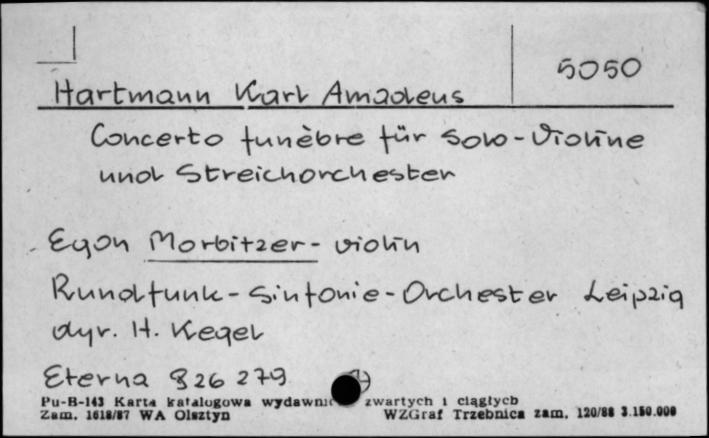 5050
Hartmann Karl Amadeus
Concerto funèbre für Solo-Violine
und Streichorchester
Egon Morbitzer - violin
Rundfunk-Sinfonie-Orchester Leipzig
dyr. H. Kegel
Eterna 826 279
Pu-B-143 Karta katalogowa wydawnic zwartych i ciągłych
Zam. 1618/87 WA Olsztyn WZGraf Trzebnica zam. 120/88 3.150.000